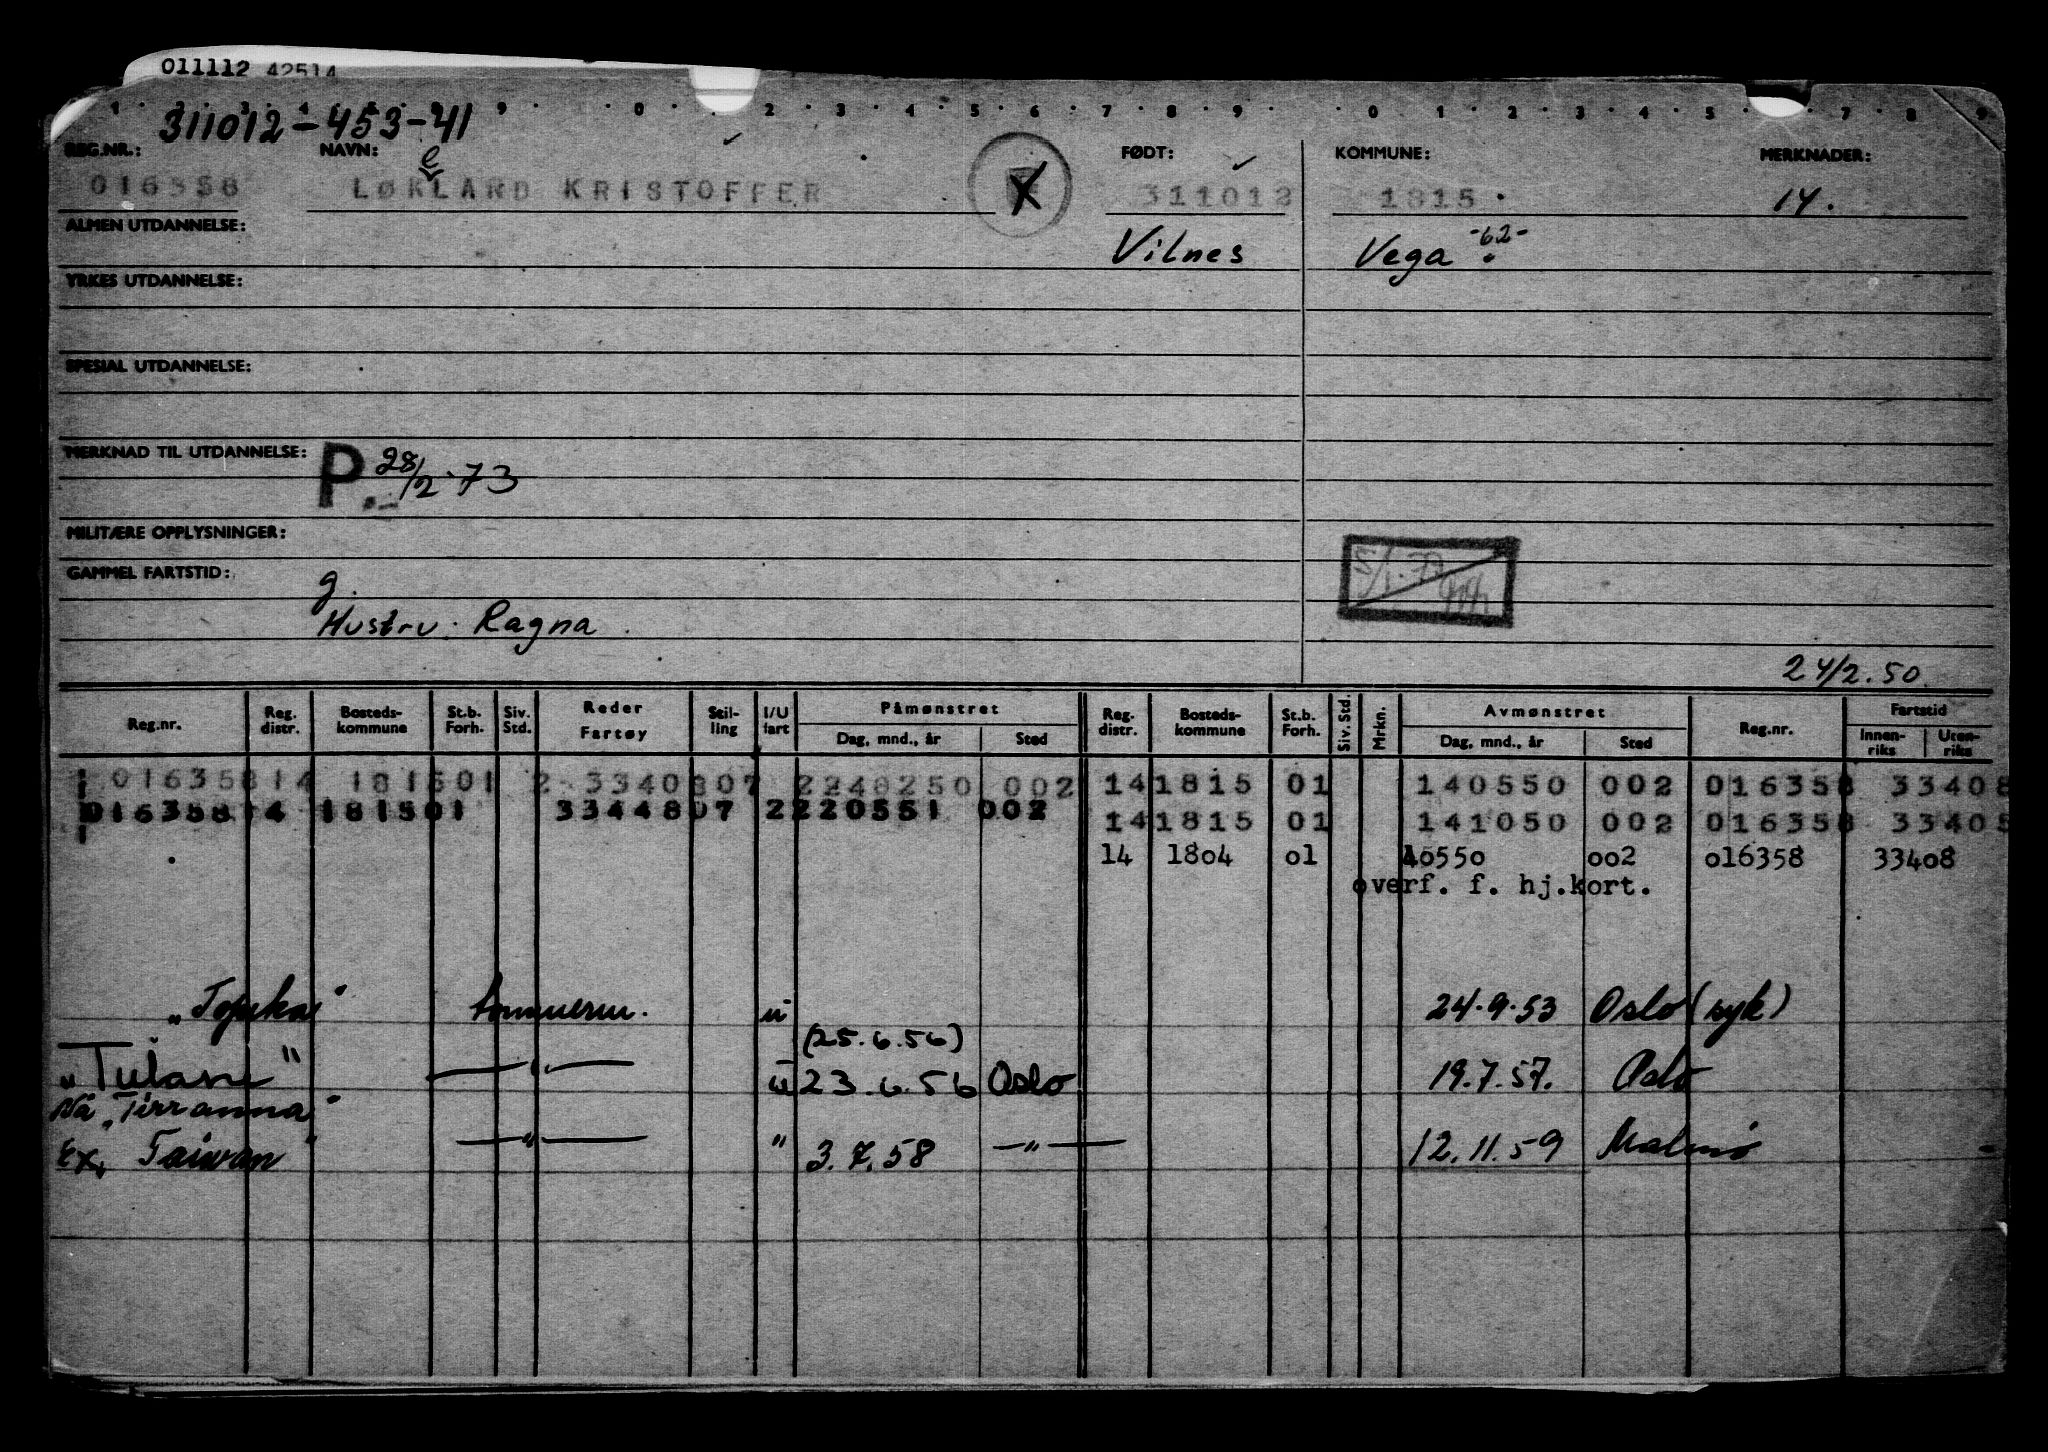 011112 42514
1 2 3 4 5 6 8 9 0 2 3 4 5 6 7 8 9 0 1 2 3 4 5 7 8 9
311012-453-41
REG.NR.: NAVN: FØDT: KOMMUNE: MERKNADER:
e
016358 LØKLAND KRISTOFFER X 311012 1815 14.
ALMEN UTDANNELSE:
Vilnes Vega -62-
YRKES UTDANNELSE:
SPESIAL UTDANNELSE:
MERKNAD TIL UTDANNELSE: P. 28/2-73
MILITÆRE OPPLYSNINGER:
GAMMEL FARTSTID:
g.
Hustru: Ragna.
24/2.50.
Reg.nr. Reg. distr. Bosteds-kommune St.b. Forh. Siv. Std. Reder Fartøy Stil-ling I/U fart Påmønstret Dag, mnd., år Sted Reg. distr. Bosteds-kommune St.b. Forh. Siv. Std. Mrkn. Avmønstret Dag, mnd., år Sted Reg.nr. Fartstid Innen-riks Uten-riks
01635814 181501 2 3340807 2240250 002 14 1815 01 140550 002 016358 33408
01635814 181501 3344807 2220551 002
14 1815 01 141050 002 016358 33405
14 1804 01 140550 002 016358 33408
overf. f. hj.kort.
"Topeka" u 24.9.53 Oslo (syk)
(25.6.56)
"Tulane" —"— u 23.6.56 Oslo 19.7.57. Oslo
Nå "Tirranna"
Ex, Taiwan" —"— " 3.7.58 —"— 12.11.59 Malmø -